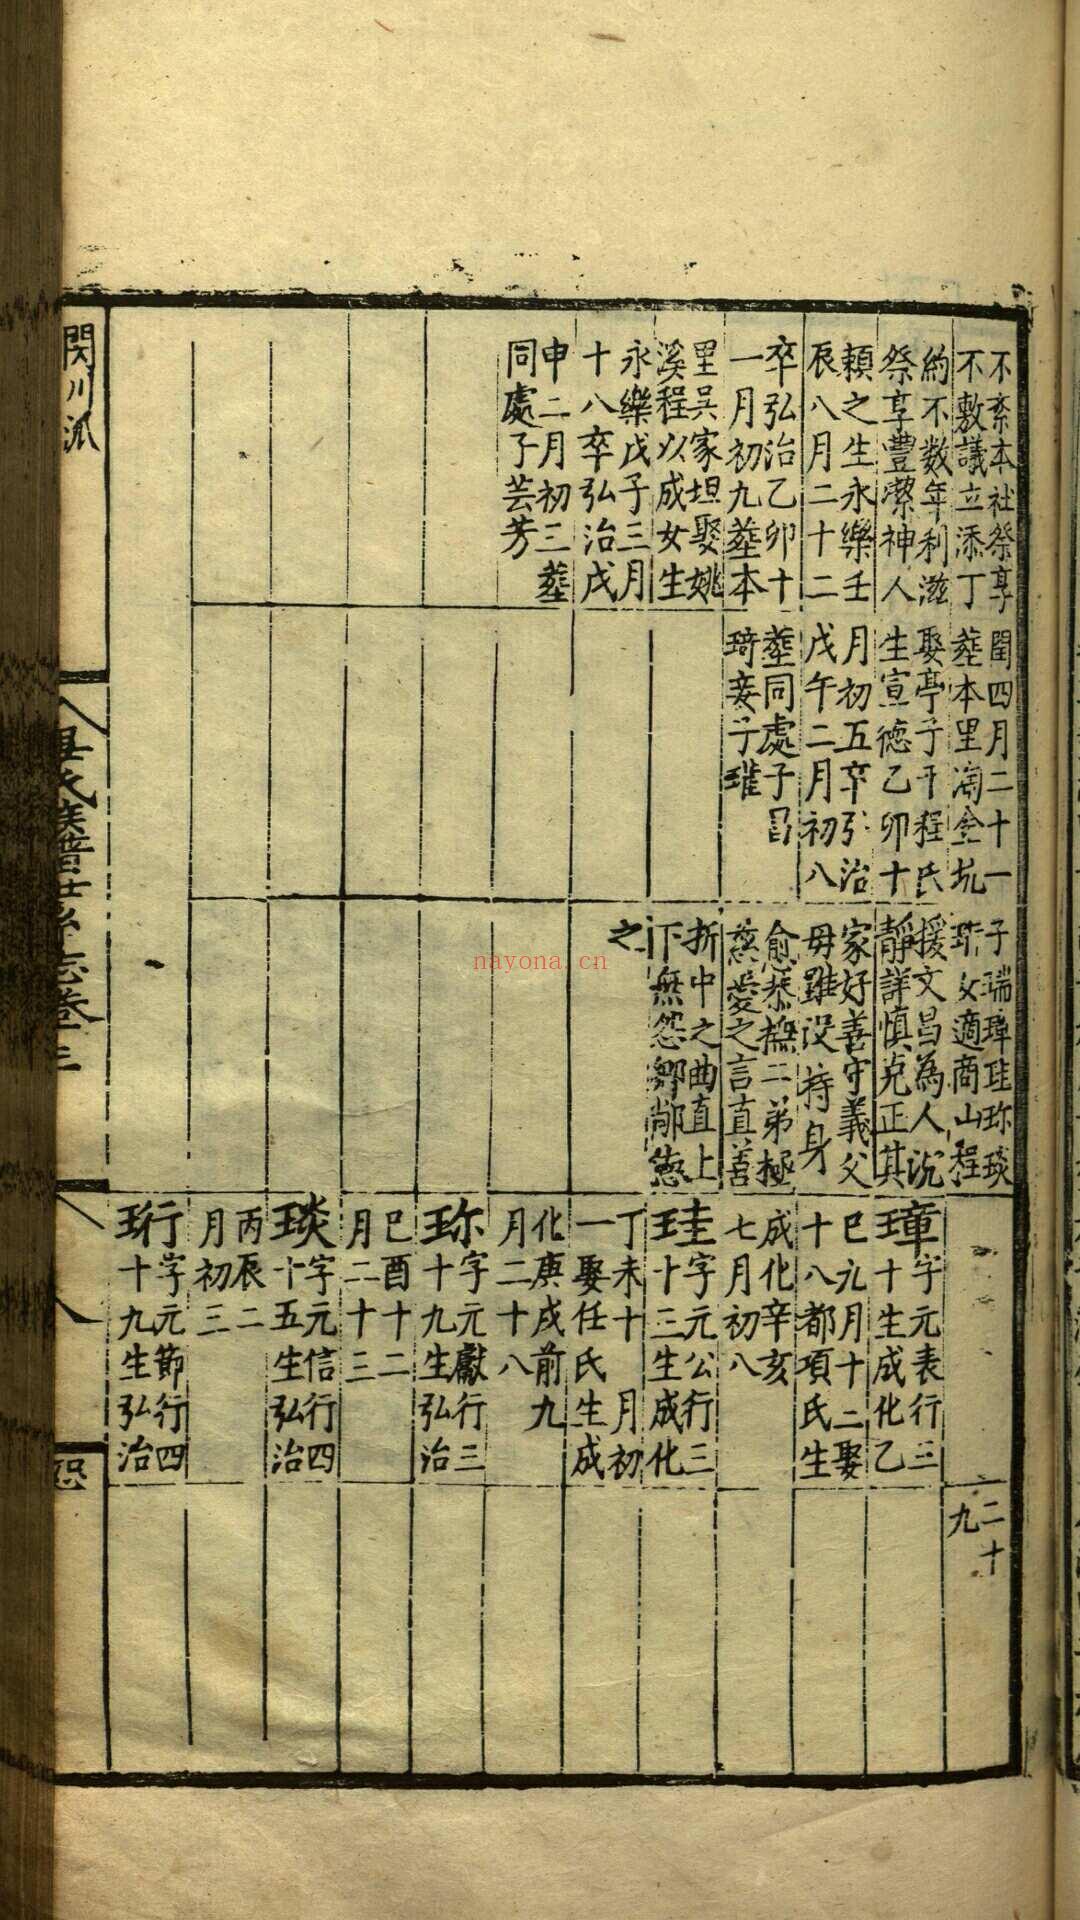 不紊本社祭享
不敷議立添丁
約不数年利滋
祭享豐潔神人
頼之生永樂壬
辰八月二十二
卒弘治乙卯十
一月初九塟本
里呉家坦娶姚
溪程以成女生
永樂戊子三月
十八卒弘治戊
申二月初三塟
同處子芸芳
閏四月二十一
塟本里淘金坑
娶亭子干程氏
生宣德乙卯十
月初五卒弘治
戊午二月初八
塟同處子昌
琦妾子璀
子瑞璋珪珎琰
珩女適商山程
援文昌為人沉
靜詳慎克正其
家好善守義父
毋雖没持身
愈恭撫二弟極
慈愛之言直善
折中之曲直上
下無怨鄉鄰
之
璋字元表行三
十生成化乙
巳九月十二娶
十八都項氏生
成化辛亥
七月初八
珪字元公行三
十三生成化
丁未十月初
一娶任氏生成
化庚戌前九
月二十八
珎字元獻行三
十九生弘治
己酉十二
月二十三
琰字元信行四
十五生弘治
丙辰二
月初三
珩字元節行四
十九生弘治
二十
九
閔川派
族譜世系志卷三
nayona.cn